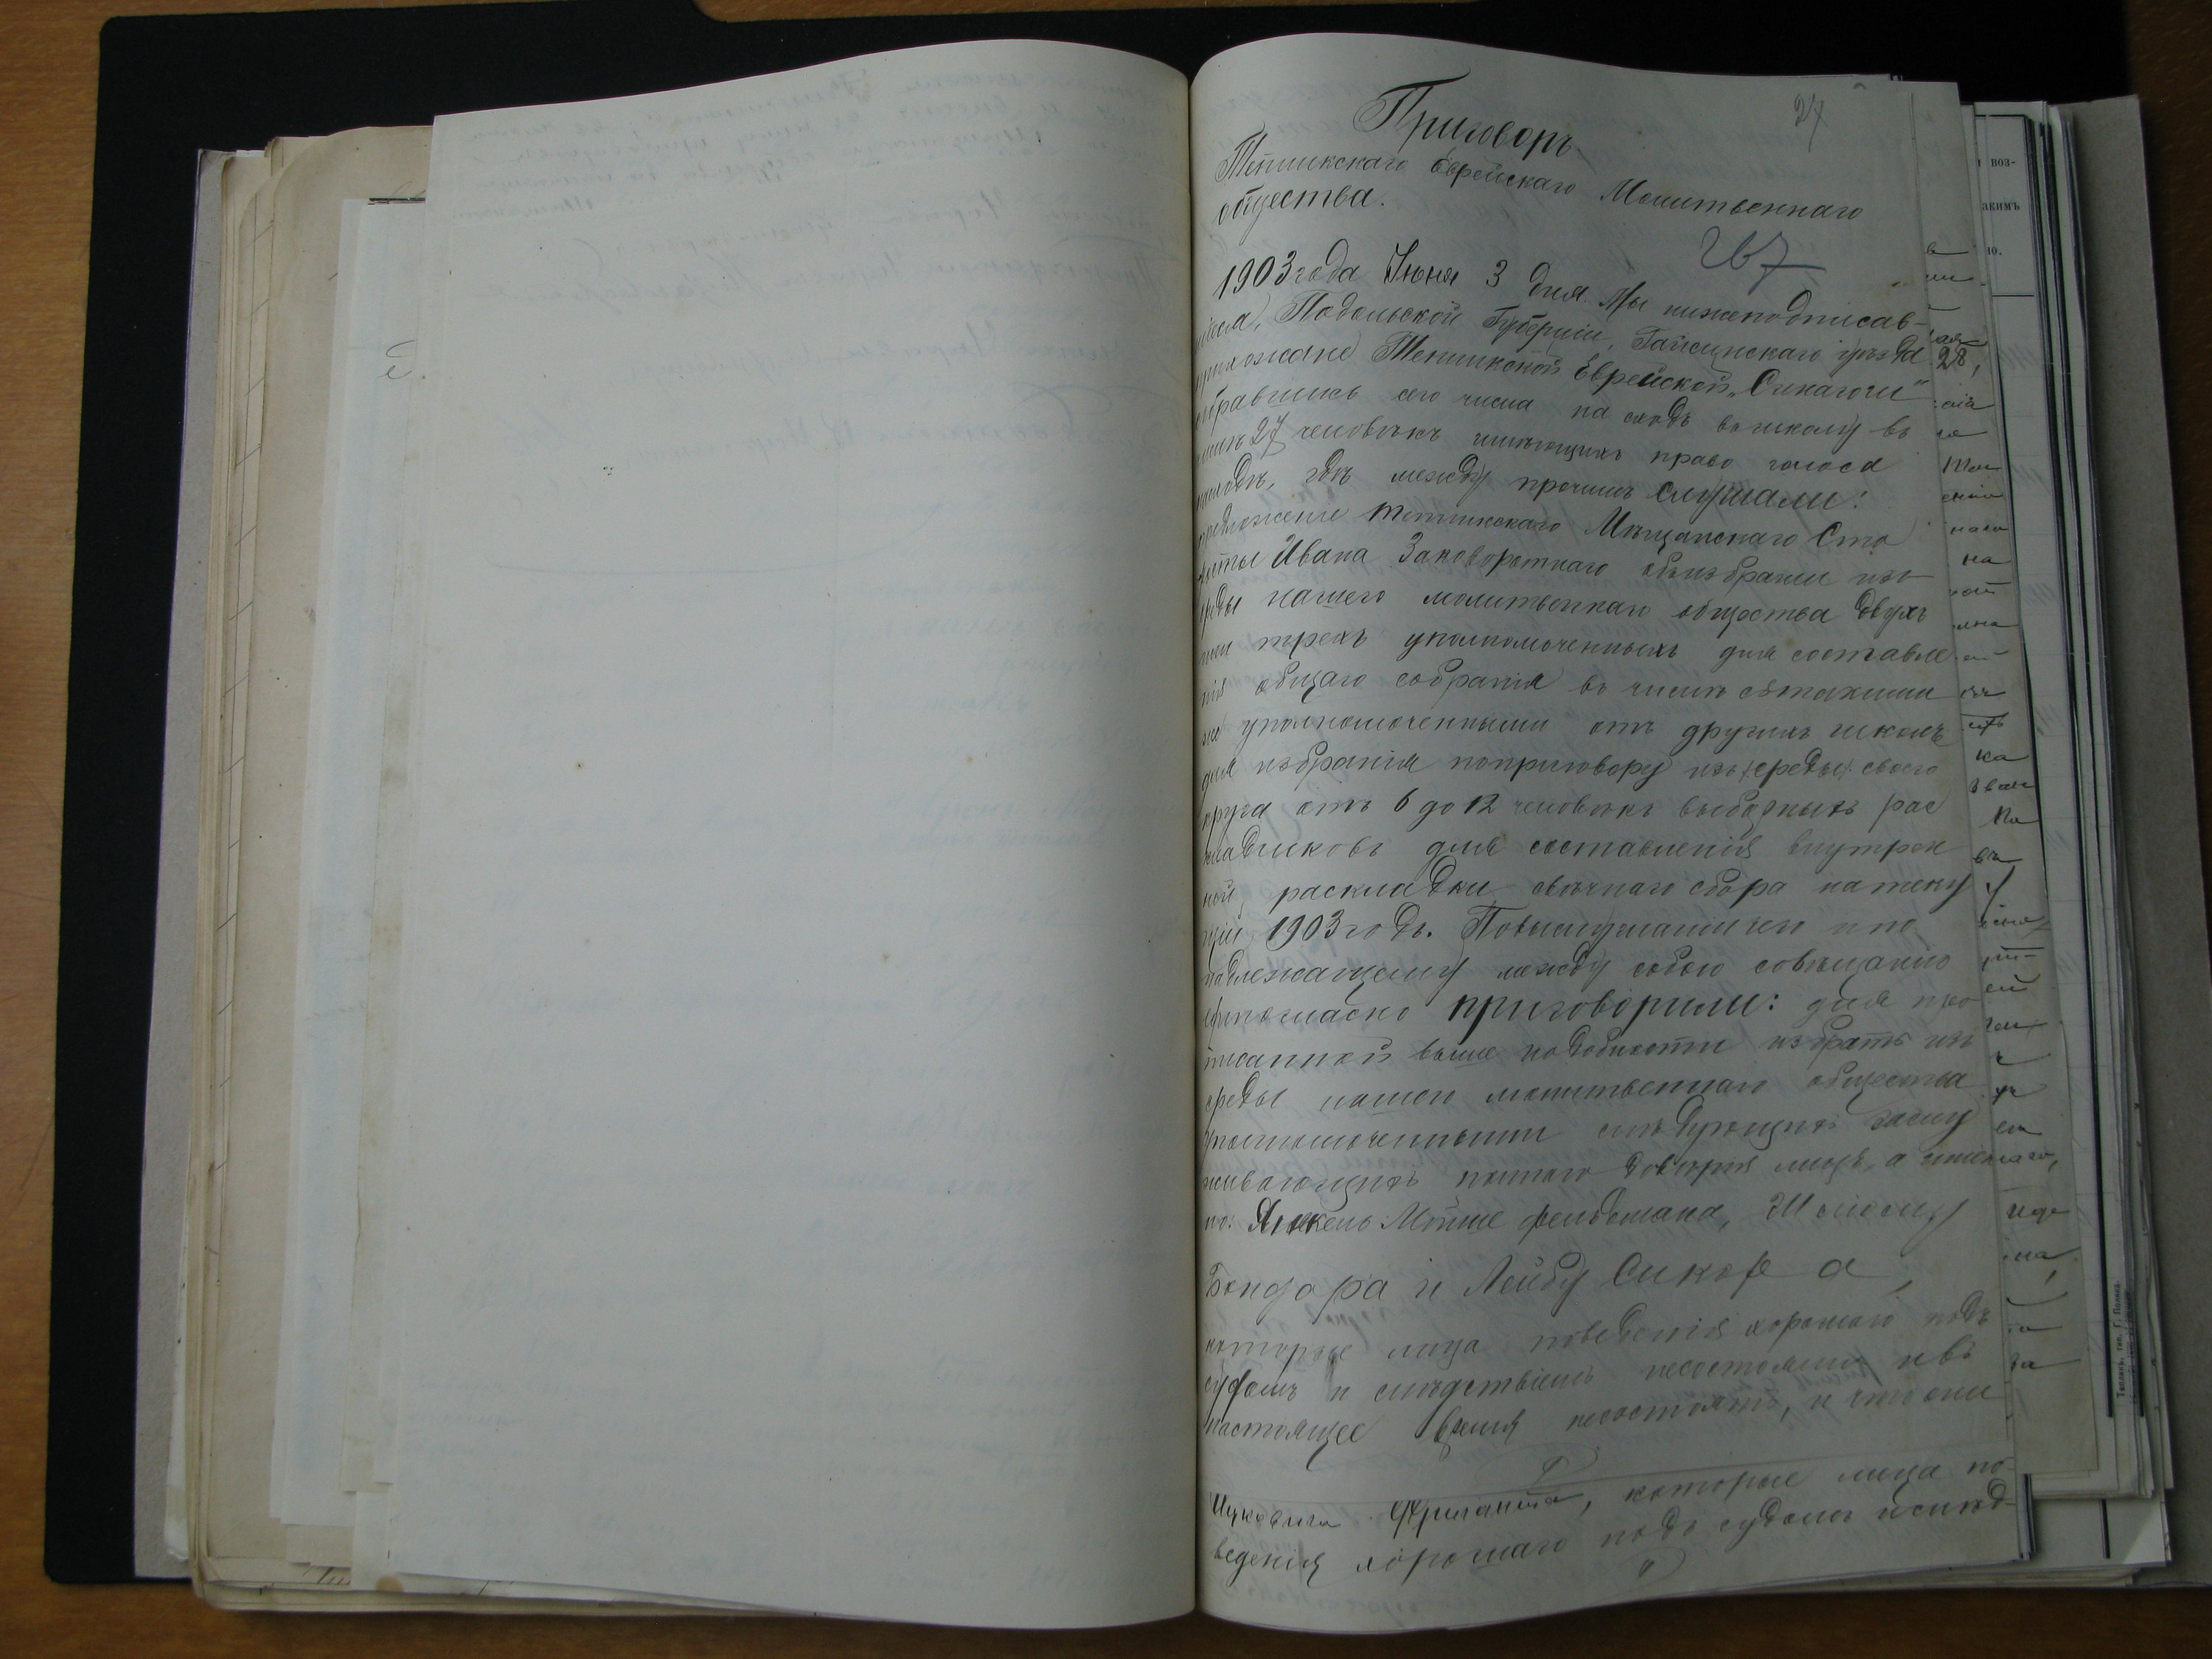 27
Приговоръ
Теплинскаго Еврейскаго Молитвеннаго
общества.
267
1903 года Іюня 3 дня. Мы нижеподписав-
шіеся, Подольской Губерніи, Гайсинскаго уѣзда
прихожане Тепликской Еврейской „Синагоги"
собравшись сего числа на сходъ въ
27 человѣкъ имѣющихъ право голоса
гдѣ между прочимъ слушали:
предложеніе Тепликскаго Мѣщанскаго Ста
росты Ивана Заворотнаго объ избраніи изъ
среды нашего молитвеннаго общества двухъ
или трехъ уполномоченныхъ для составле
нія общаго собранія въ числѣ съ такими
же уполномоченными отъ другихъ школъ
для избранія по приговору изъ среды своего
круга отъ 6 до 12 человѣкъ выборныхъ рас
кладчиковъ для составленія внутрен
ной раскладки свѣчнаго сбора на теку
щій 1903 годъ. Повыслушаніи чего и по
надлежащему между собою совѣщанію
единогласно приговорили: для про
писанной выше надобности избрать изъ
среды нашего молитвеннаго общества
уполномоченными слѣдующихъ заслу
живающихъ полнаго довѣрія лицъ, а имен
но: Янкель Мошие Фельдмана, Шлёму
Бондаря и Лейбу Сикора,
которые лица поведенія хорошаго подъ
судомъ и слѣдствіемъ несостояли и въ
настоящее время несостоятъ, и что они
Ицковича, которые лица по
веденія хорошаго подъ судомъ и слѣд-